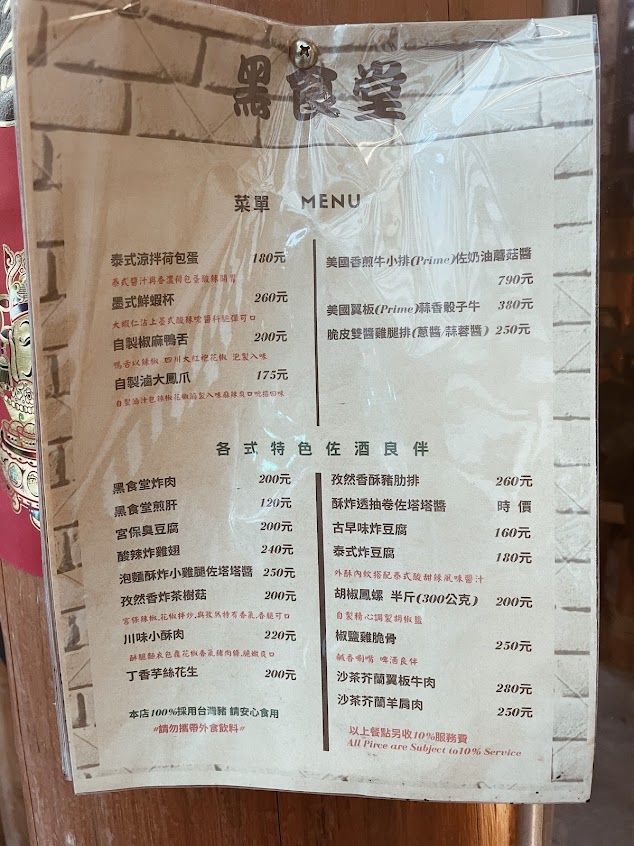 黑食堂
菜單 MENU
泰式涼拌荷包蛋 180元
泰式醬汁與香濃荷包蛋酸辣開胃
墨式鮮蝦杯 260元
大蝦仁沾上墨式酸辣嗆醬料脆彈可口
自製椒麻鴨舌 200元
鴨舌以辣椒 四川大紅袍花椒 泡製入味
自製滷大鳳爪 175元
自製滷汁包辣椒花椒滷製入味麻辣爽口
美國香煎牛小排(Prime)佐奶油蘑菇醬
790元
美國翼板(Prime)蒜香骰子牛 380元
脆皮雙醬雞腿排(蔥醬/蒜蓉醬) 250元
各式特色佐酒良伴
黑食堂炸肉 200元
黑食堂煎肝 120元
宮保臭豆腐 200元
酸辣炸雞翅 240元
泡麵酥炸小雞腿佐塔塔醬 250元
孜然香炸茶樹菇 200元
宮保辣椒,花椒拌炒,與孜然特有香氣,香脆可口
川味小酥肉 220元
酥脆麵衣包裹花椒香氣豬肉條,脆嫩爽口
丁香芋絲花生 200元
本店100%採用台灣豬 請安心食用
"請勿攜帶外食飲料"
孜然香酥豬肋排 260元
酥炸透抽卷佐塔塔醬 時價
古早味炸豆腐 160元
泰式炸豆腐 180元
外酥內軟搭配泰式酸甜辣風味醬汁
胡椒鳳螺 半斤(300公克) 200元
自製精心調製胡椒鹽
椒鹽雞脆骨 250元
鹹香唰嘴 啤酒良伴
沙茶芥蘭翼板牛肉 280元
沙茶芥蘭羊肩肉 250元
以上餐點另收10%服務費
All Pirce are Subject to10% Service